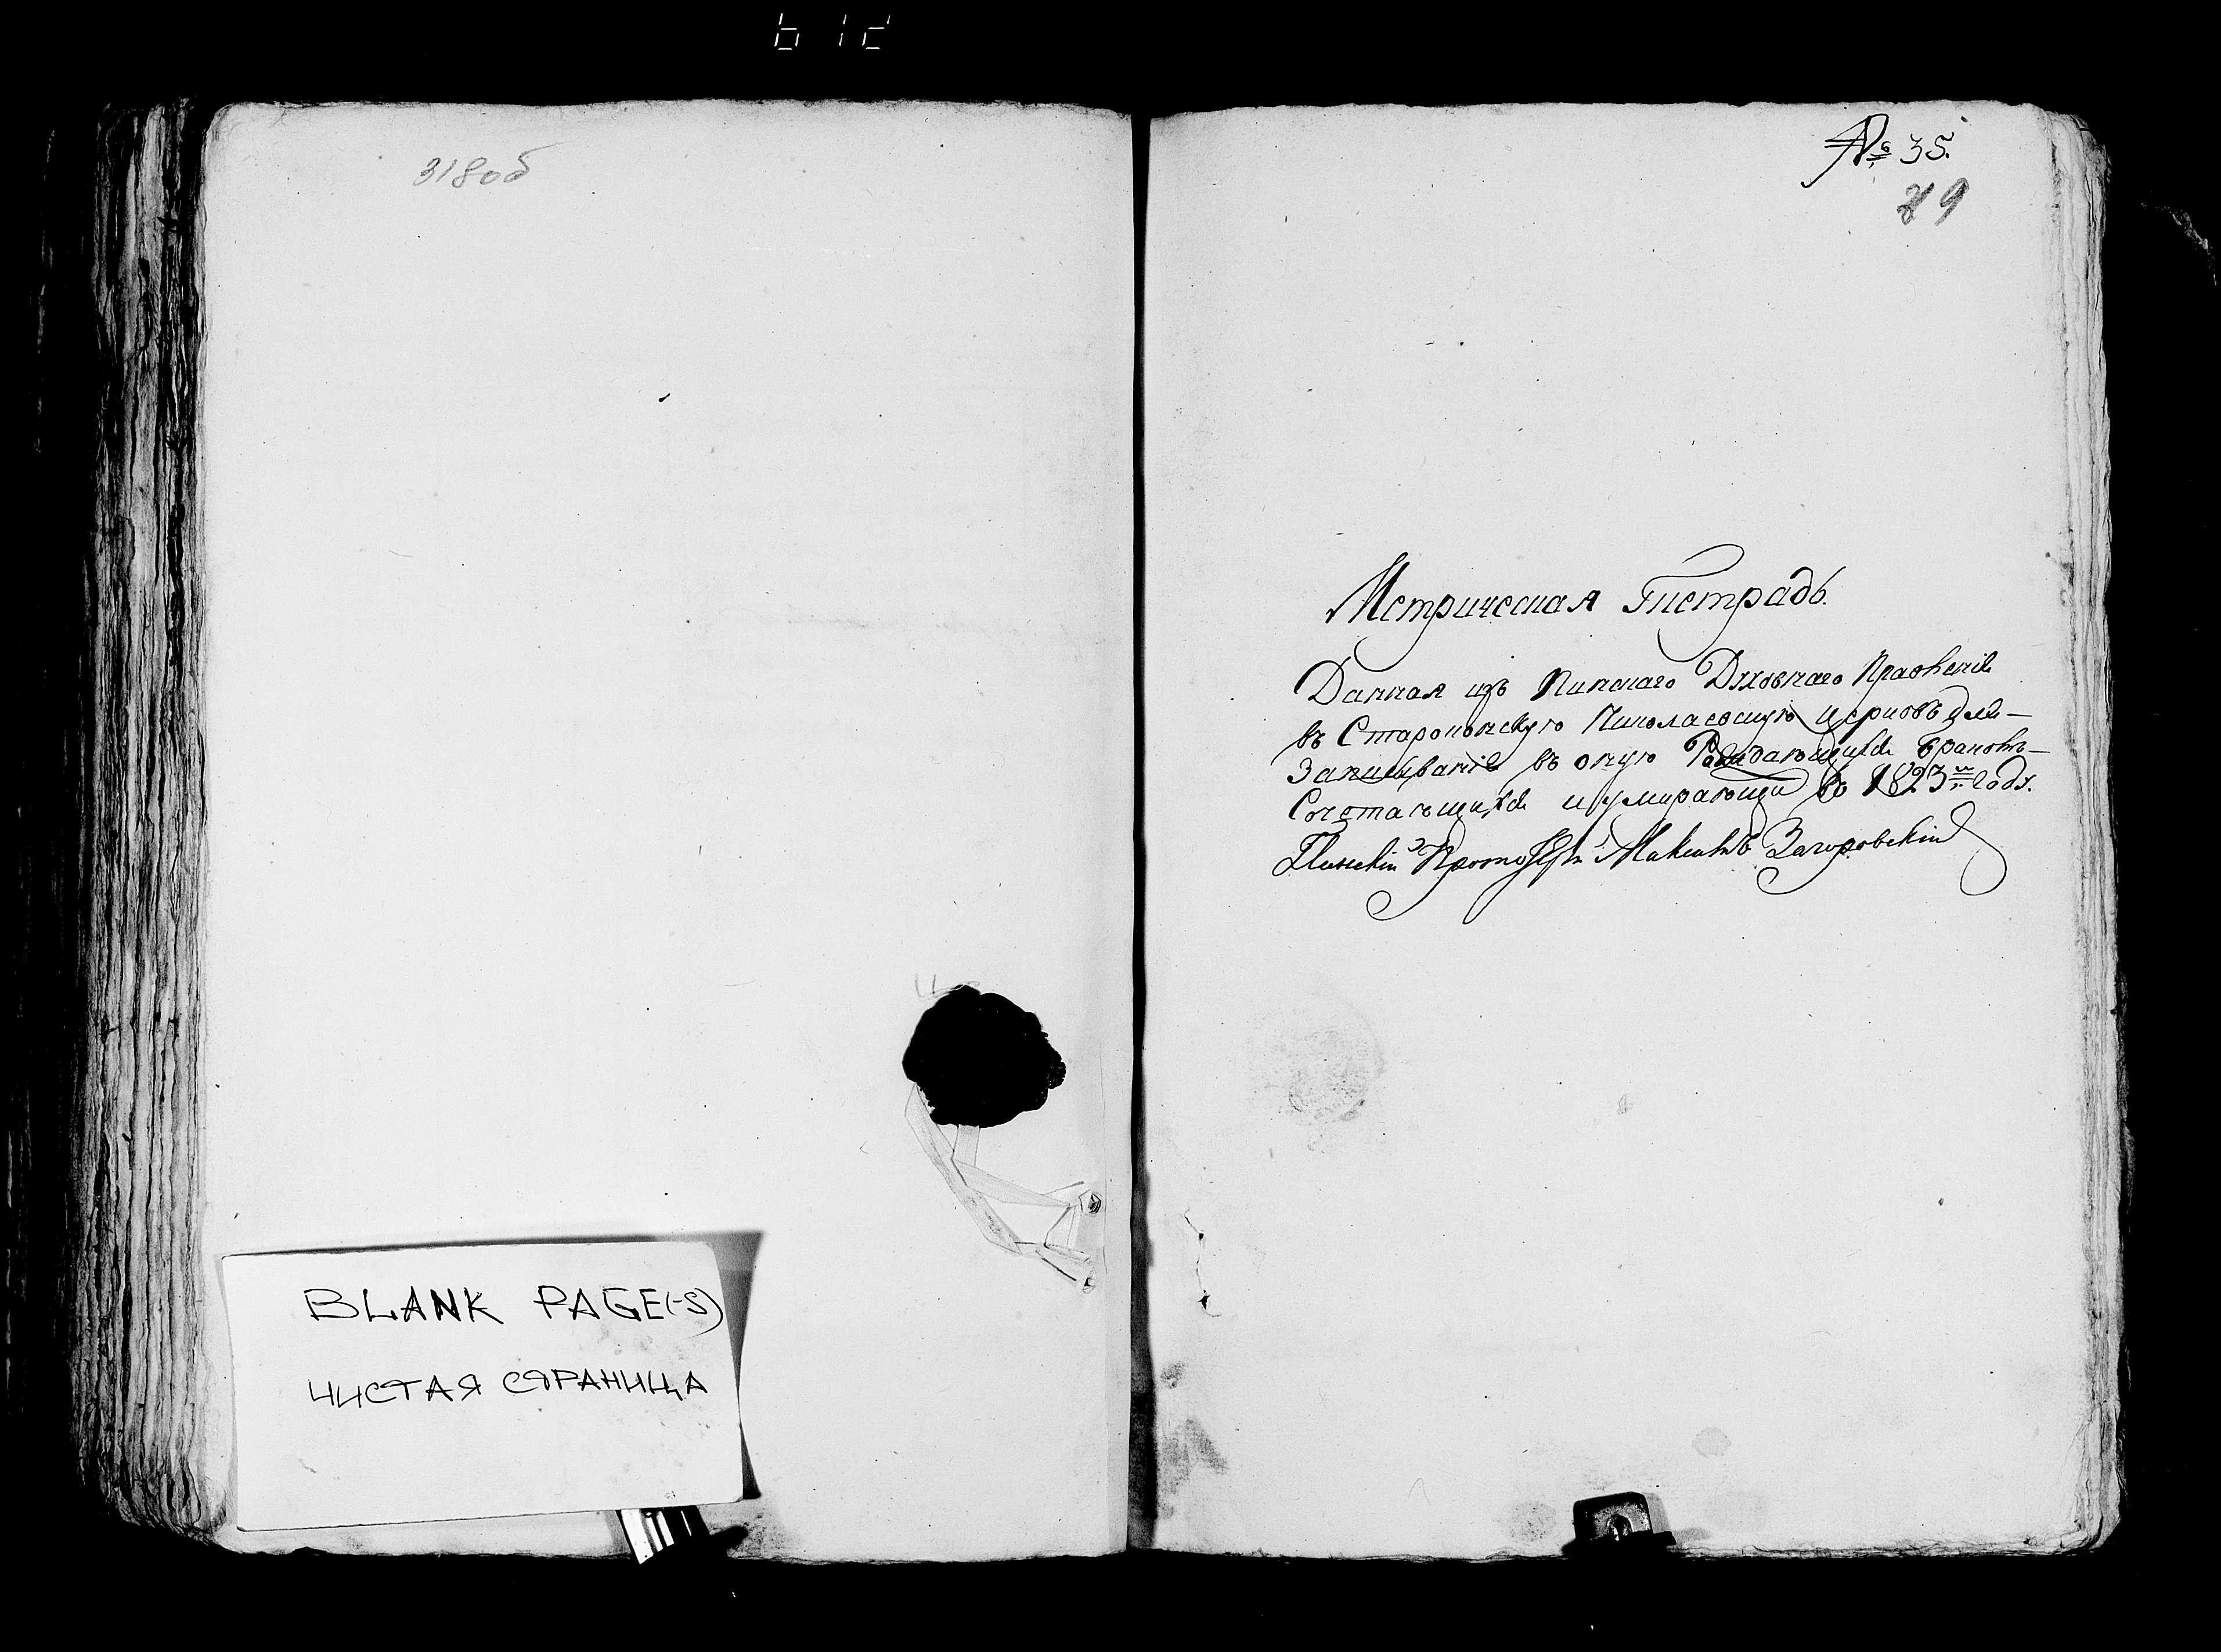 318об
BLANK PAGE(-S)
ЧИСТАЯ СТРАНИЦА
№ 35.
Метрическая Тетрадь.
Данная изъ Пинскаго Духовнаго Правленія
въ Николаевскую церковь для
Записыванія въ оную Раждающихся Бракомъ
Сочетающихся и умирающи въ 1823 году.
Пинскій Максимъ Загоровскій